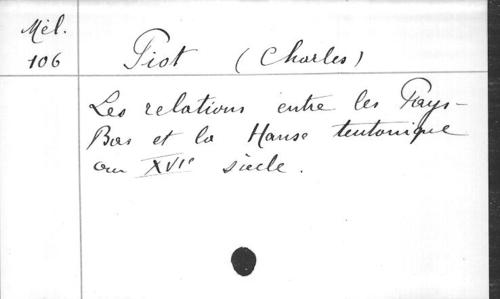 Mél.
106
Piot (Charles)
Les relations entre les Pays-
Bas et la Hanse teutonique
au XVIe siècle.